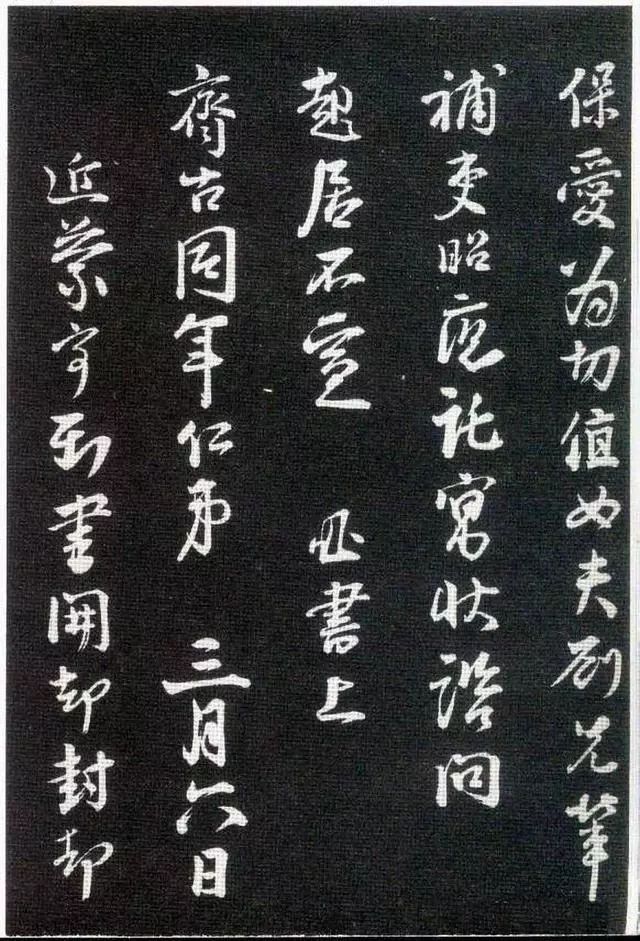 保愛為切值女夫劉兄
補吏昭應託寓狀諮問
起居不宣 書上
齊古同年仁弟 三月六日
近蒙寄到書開却封却